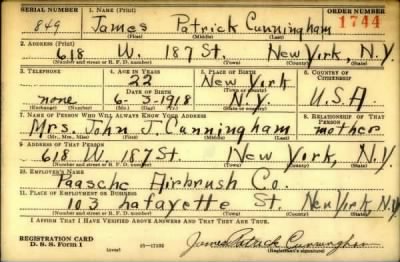 SERIAL NUMBER 1. NAME (Print) ORDER NUMBER
849 James Patrick Cunningham 1744
2. ADDRESS (Print)
618 W. 187 St. New York, N.Y.
(Number and street or R. F. D. number) (Town) (County) (State)
3. TELEPHONE 4. AGE IN YEARS 5. PLACE OF BIRTH 6. COUNTRY OF CITIZENSHIP
22 New York
DATE OF BIRTH
none 6-3-1918 N.Y. U.S.A.
(Exchange) (Number) (Mo.) (Day) (Yr.) (State or country)
7. NAME OF PERSON WHO WILL ALWAYS KNOW YOUR ADDRESS 8. RELATIONSHIP OF THAT PERSON
Mrs. John J. Cunningham mother
(Mr., Mrs., Miss) (First) (Middle) (Last)
9. ADDRESS OF THAT PERSON
618 W. 187 St. New York, N.Y.
(Number and street or R. F. D. number) (Town) (County) (State)
10. EMPLOYER'S NAME
Paasche Airbrush Co.
11. PLACE OF EMPLOYMENT OR BUSINESS
103 Lafayette St. New York, N.Y.
(Number and street or R. F. D. number) (Town) (County) (State)
I AFFIRM THAT I HAVE VERIFIED ABOVE ANSWERS AND THAT THEY ARE TRUE.
REGISTRATION CARD
D. S. S. Form 1 (over) James Patrick Cunningham
(Registrant's signature)